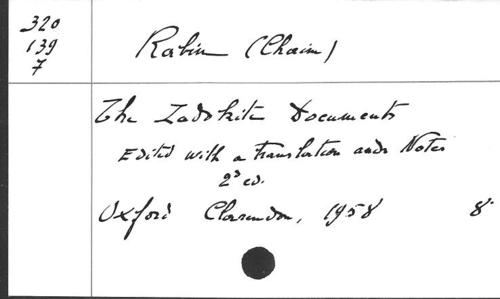 320
139
7
Rabin (Chaim)
The Zadokite Documents
Edited with a translation and Notes
2d ed.
Oxford Clarendon, 1958 8°